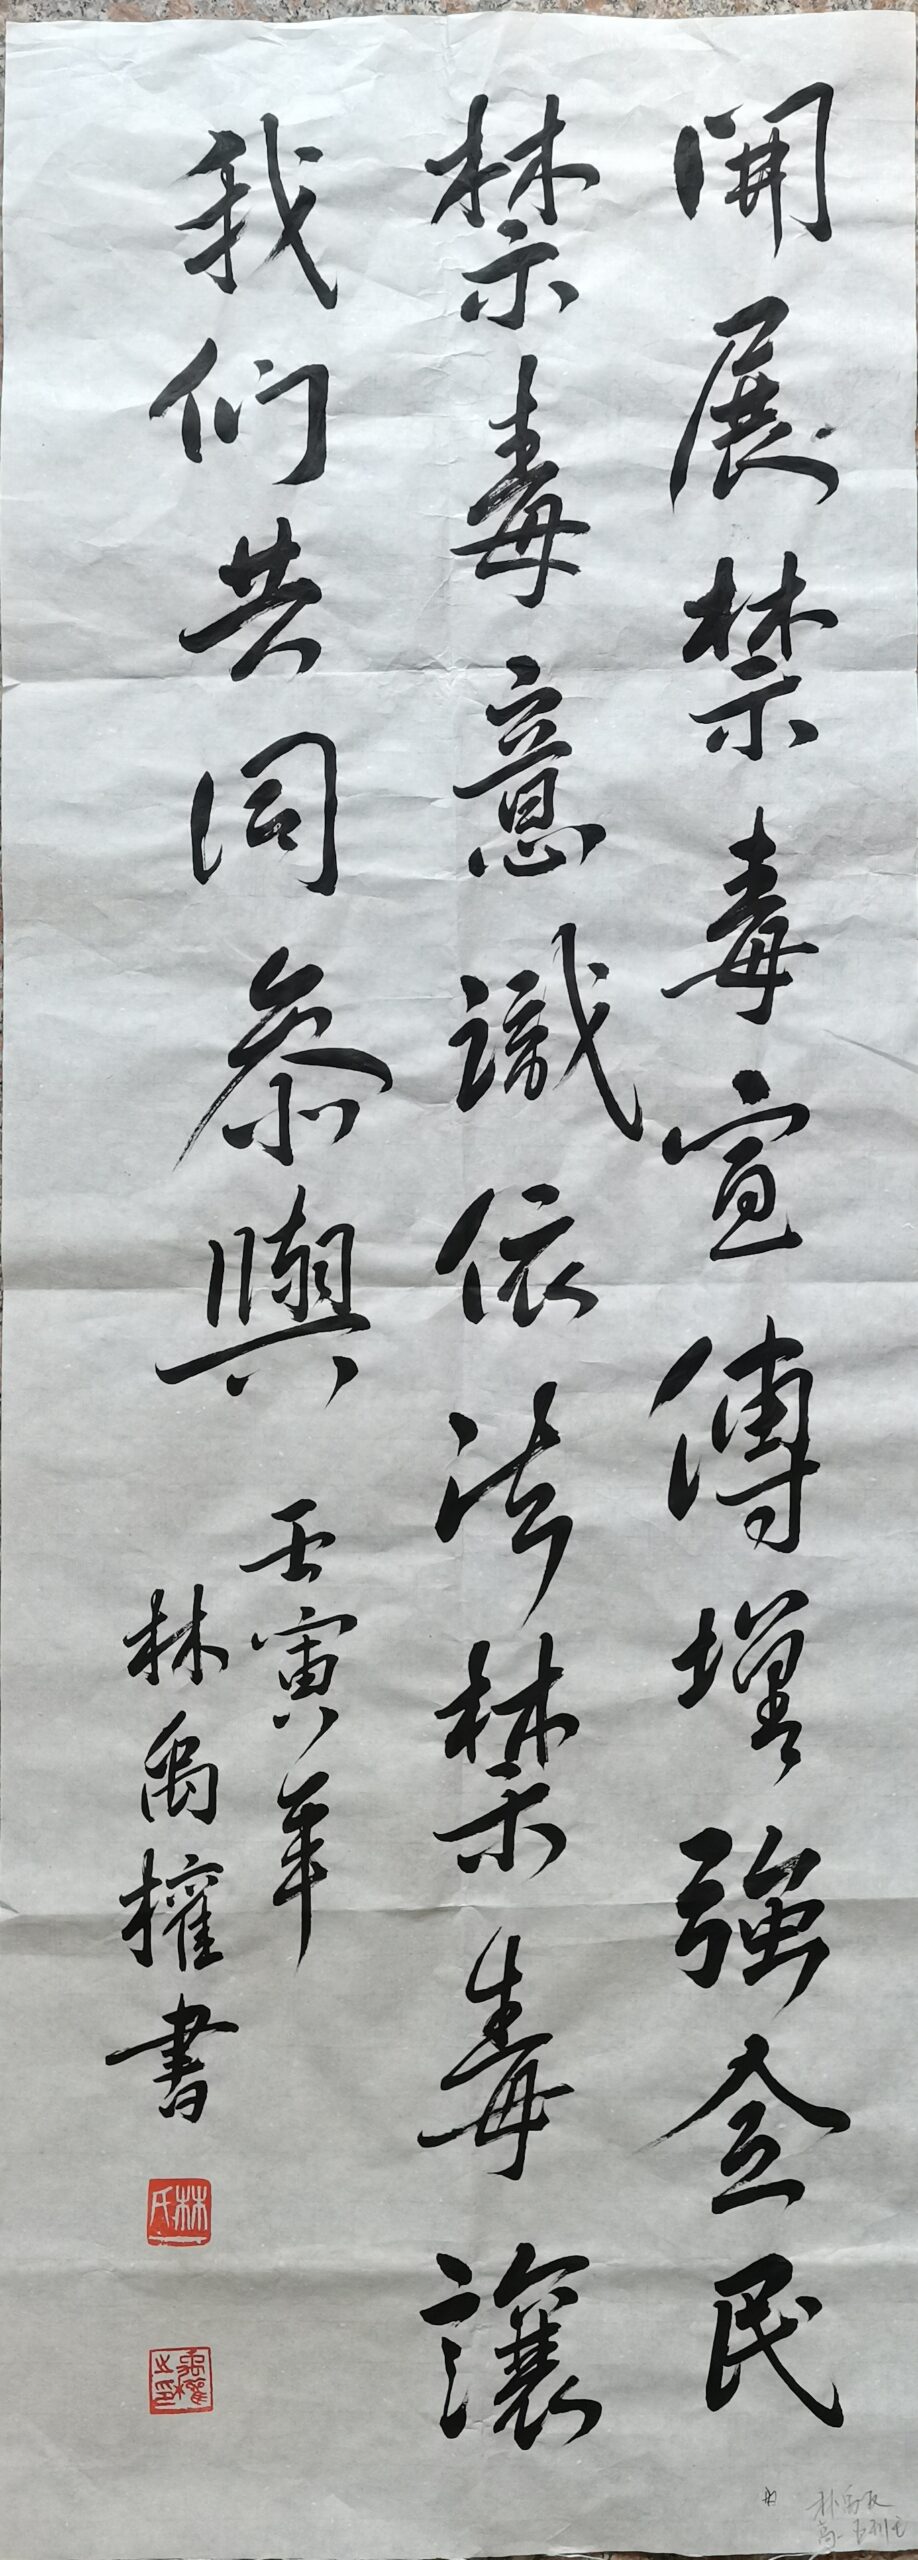 開展禁毒宣傳增強全民
禁毒意識依法禁毒讓
我们共同参與
壬寅年
林禹權書
林氏
禹權之印